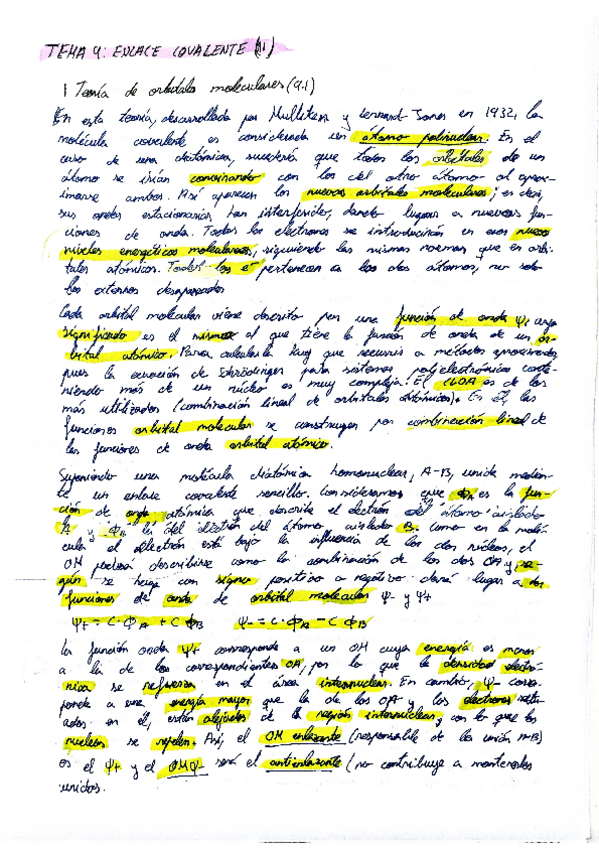 TEMA 4: ENLACE COVALENTE (II)
1 Teoría de orbitales moleculares (4.1)
En esta teoría, desarrollada por Mulliken y Lennard-Jones en 1932, la
molécula covalente es considerada un átomo polinuclear. En el
caso de una diatómica, sucedería que todos los orbitales de un
átomo se irían combinando con los del otro átomo al aprox-
imarse ambos. Así aparecen los nuevos orbitales moleculares; es decir,
sus ondas estacionarias han interferido, dando lugar a nuevas fun-
ciones de onda. Todos los electrones se introducirán en esos nuevos
niveles energéticos moleculares, siguiendo las mismas normas que en orbi-
tales atómicos. Todos los e⁻ pertenecen a los dos átomos, no solo
los externos desapareados
Cada orbital molecular viene descrito por una función de onda Ψ, cuyo
significado es el mismo al que tiene la función de onda de un or-
bital atómico. Para calcularla hay que recurrir a métodos aproximados
pues la ecuación de Schrödinger para sistemas polielectrónicos conte-
niendo más de un núcleo es muy compleja. El CLOA es de los
más utilizados (combinación lineal de orbitales atómicos). En él, las
funciones orbital molecular se construyen por combinación lineal de
las funciones de onda orbital atómico.
Suponiendo una molécula diatómica homonuclear, A-B, unida median-
te un enlace covalente sencillo. Consideramos que ΦA es la fun-
ción de onda atómica que describe el electrón del átomo aislado
A y ΦB la del electrón del átomo aislado B. Como en la molé-
cula el electrón está bajo la influencia de los dos núcleos, el
OM podrá describirse como la combinación de los dos OA y se-
gún se haga con signo positivo o negativo dará lugar a dos
funciones de onda de orbital molecular Ψ- y Ψ+
Ψ+ = C · ΦA + C ΦB Ψ- = C · ΦA - C ΦB
La función onda Ψ+ corresponde a un OM cuya energía es menor
a la de los correspondientes OA, por lo que la densidad electró-
nica se refuerza en el área internuclear. En cambio, Ψ- corres-
ponde a una energía mayor que la de los OA y los electrones situ-
ados en él, están alejados de la región internuclear, con lo que los
núcleos se repelen. Así, el OM enlazante (responsable de la unión A-B)
es el Ψ+ y el OM Ψ- será el antienlazante (no contribuye a mantenerlos
unidos.